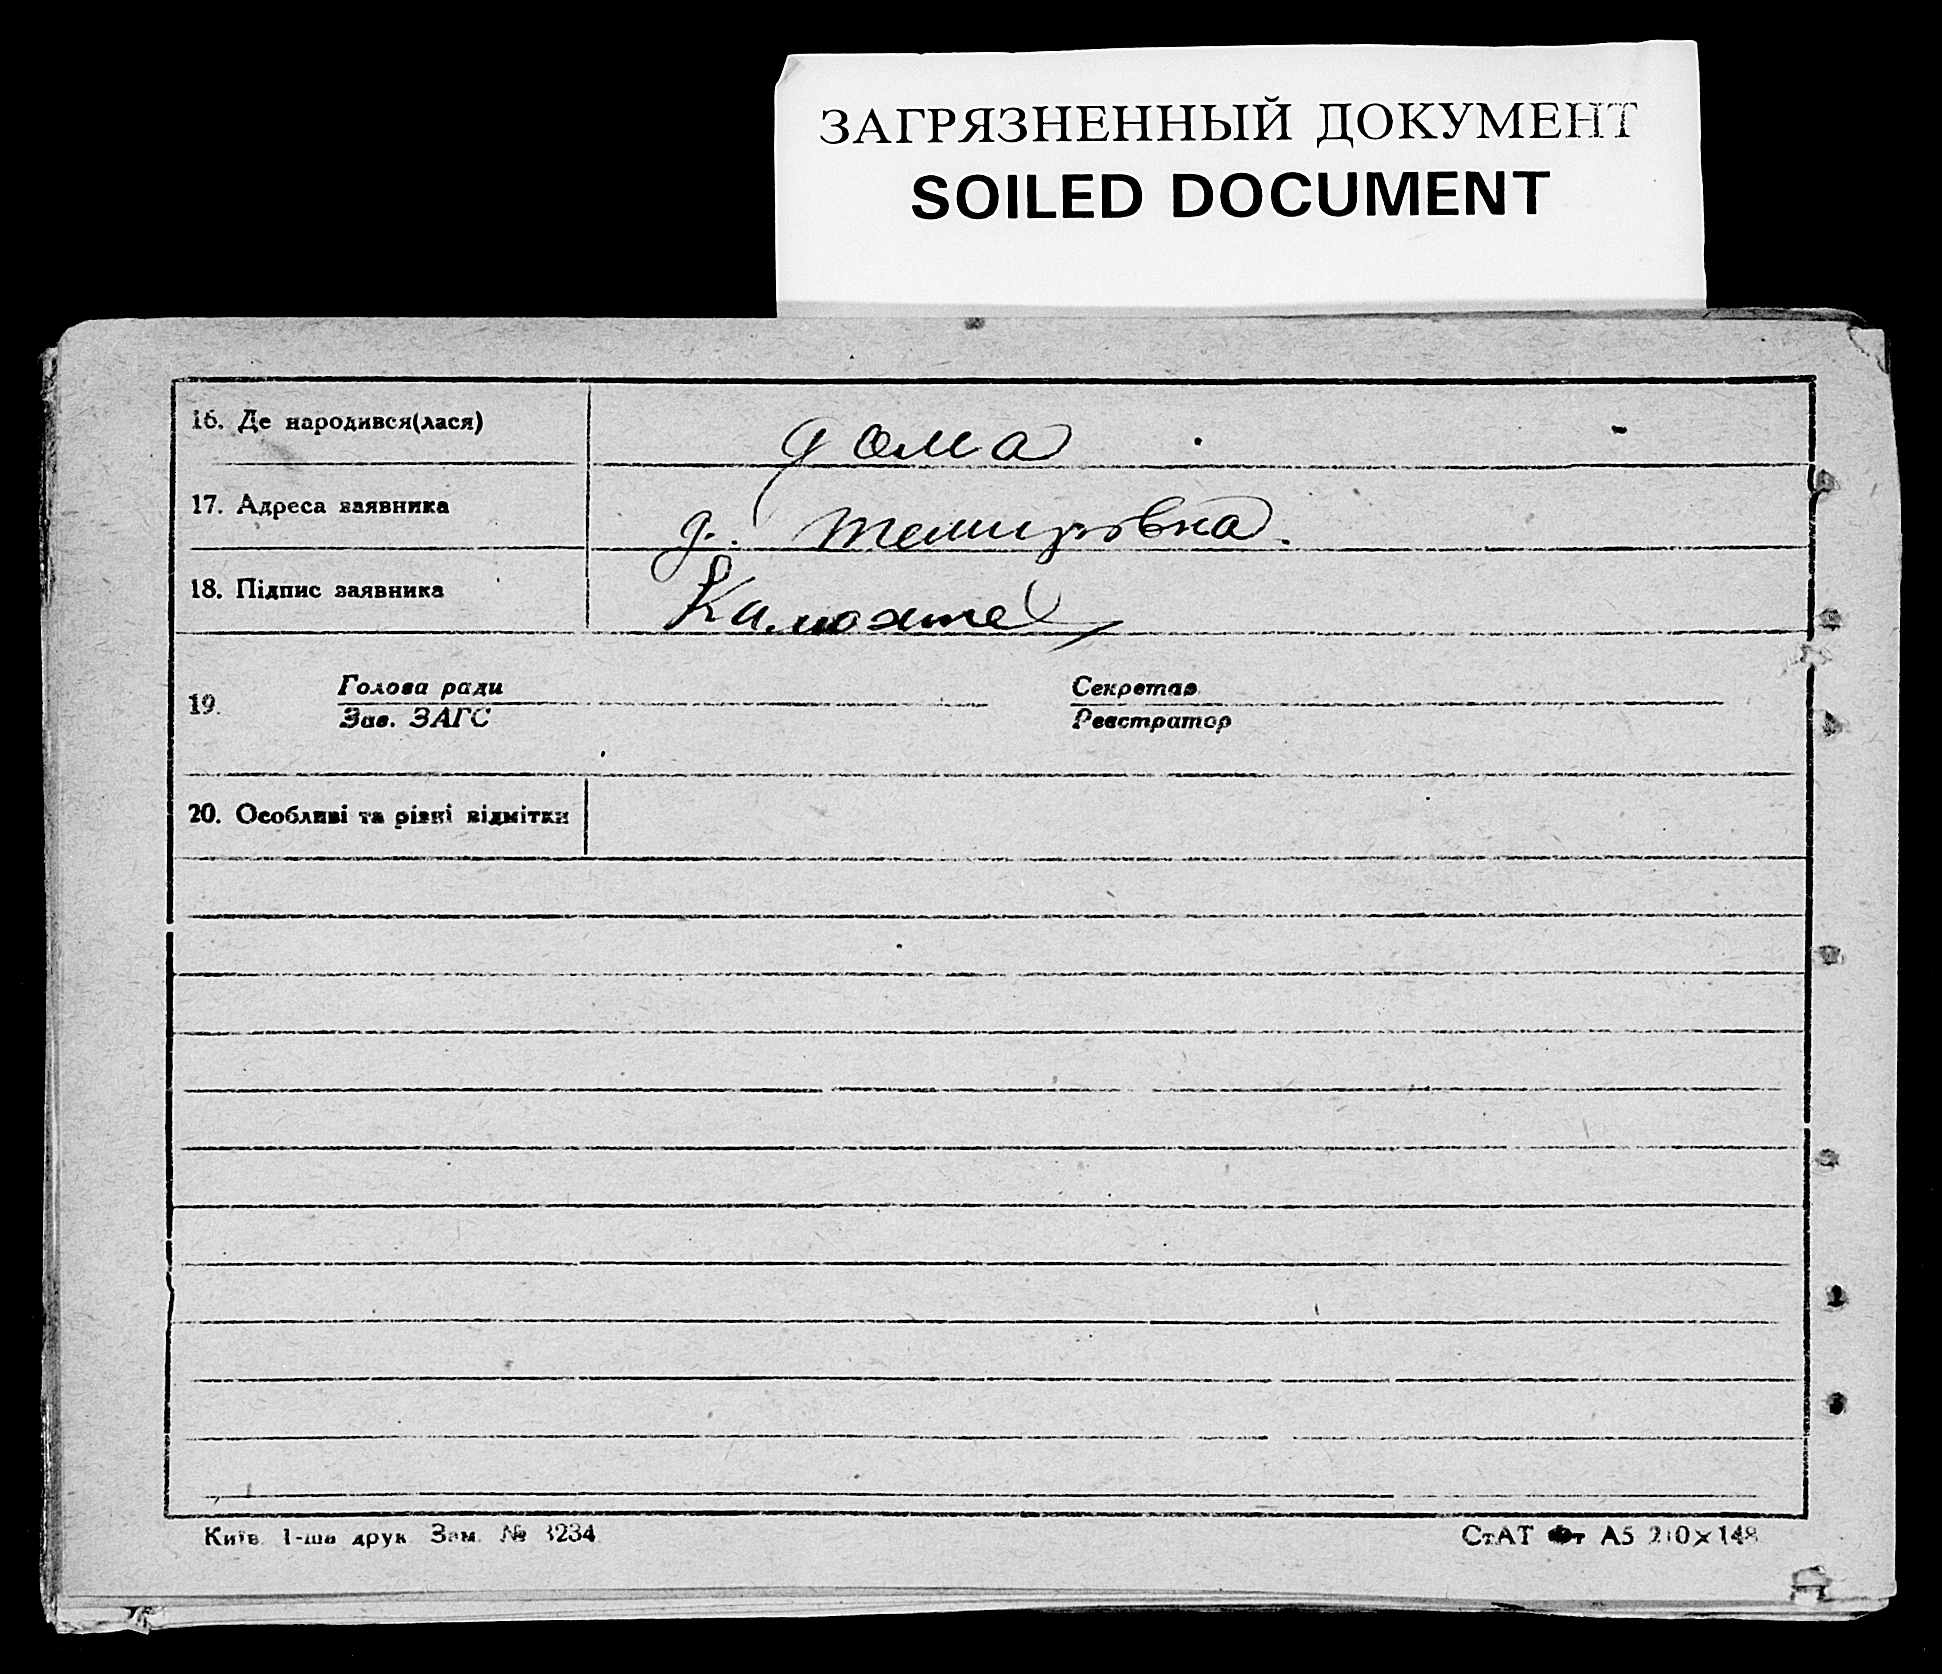 ЗАГРЯЗНЕННЫЙ ДОКУМЕНТ
SOILED DOCUMENT
16. Де народився(лася) дома
17. Адреса заявника д. Темировка.
18. Підпис заявника
19. Голова ради Секретар
Зав. ЗАГС Реєстратор
20. Особливі та різні відмітки
Київ. 1-ша друк. Зам. № 3234 СтАТ Фт А5 210×148